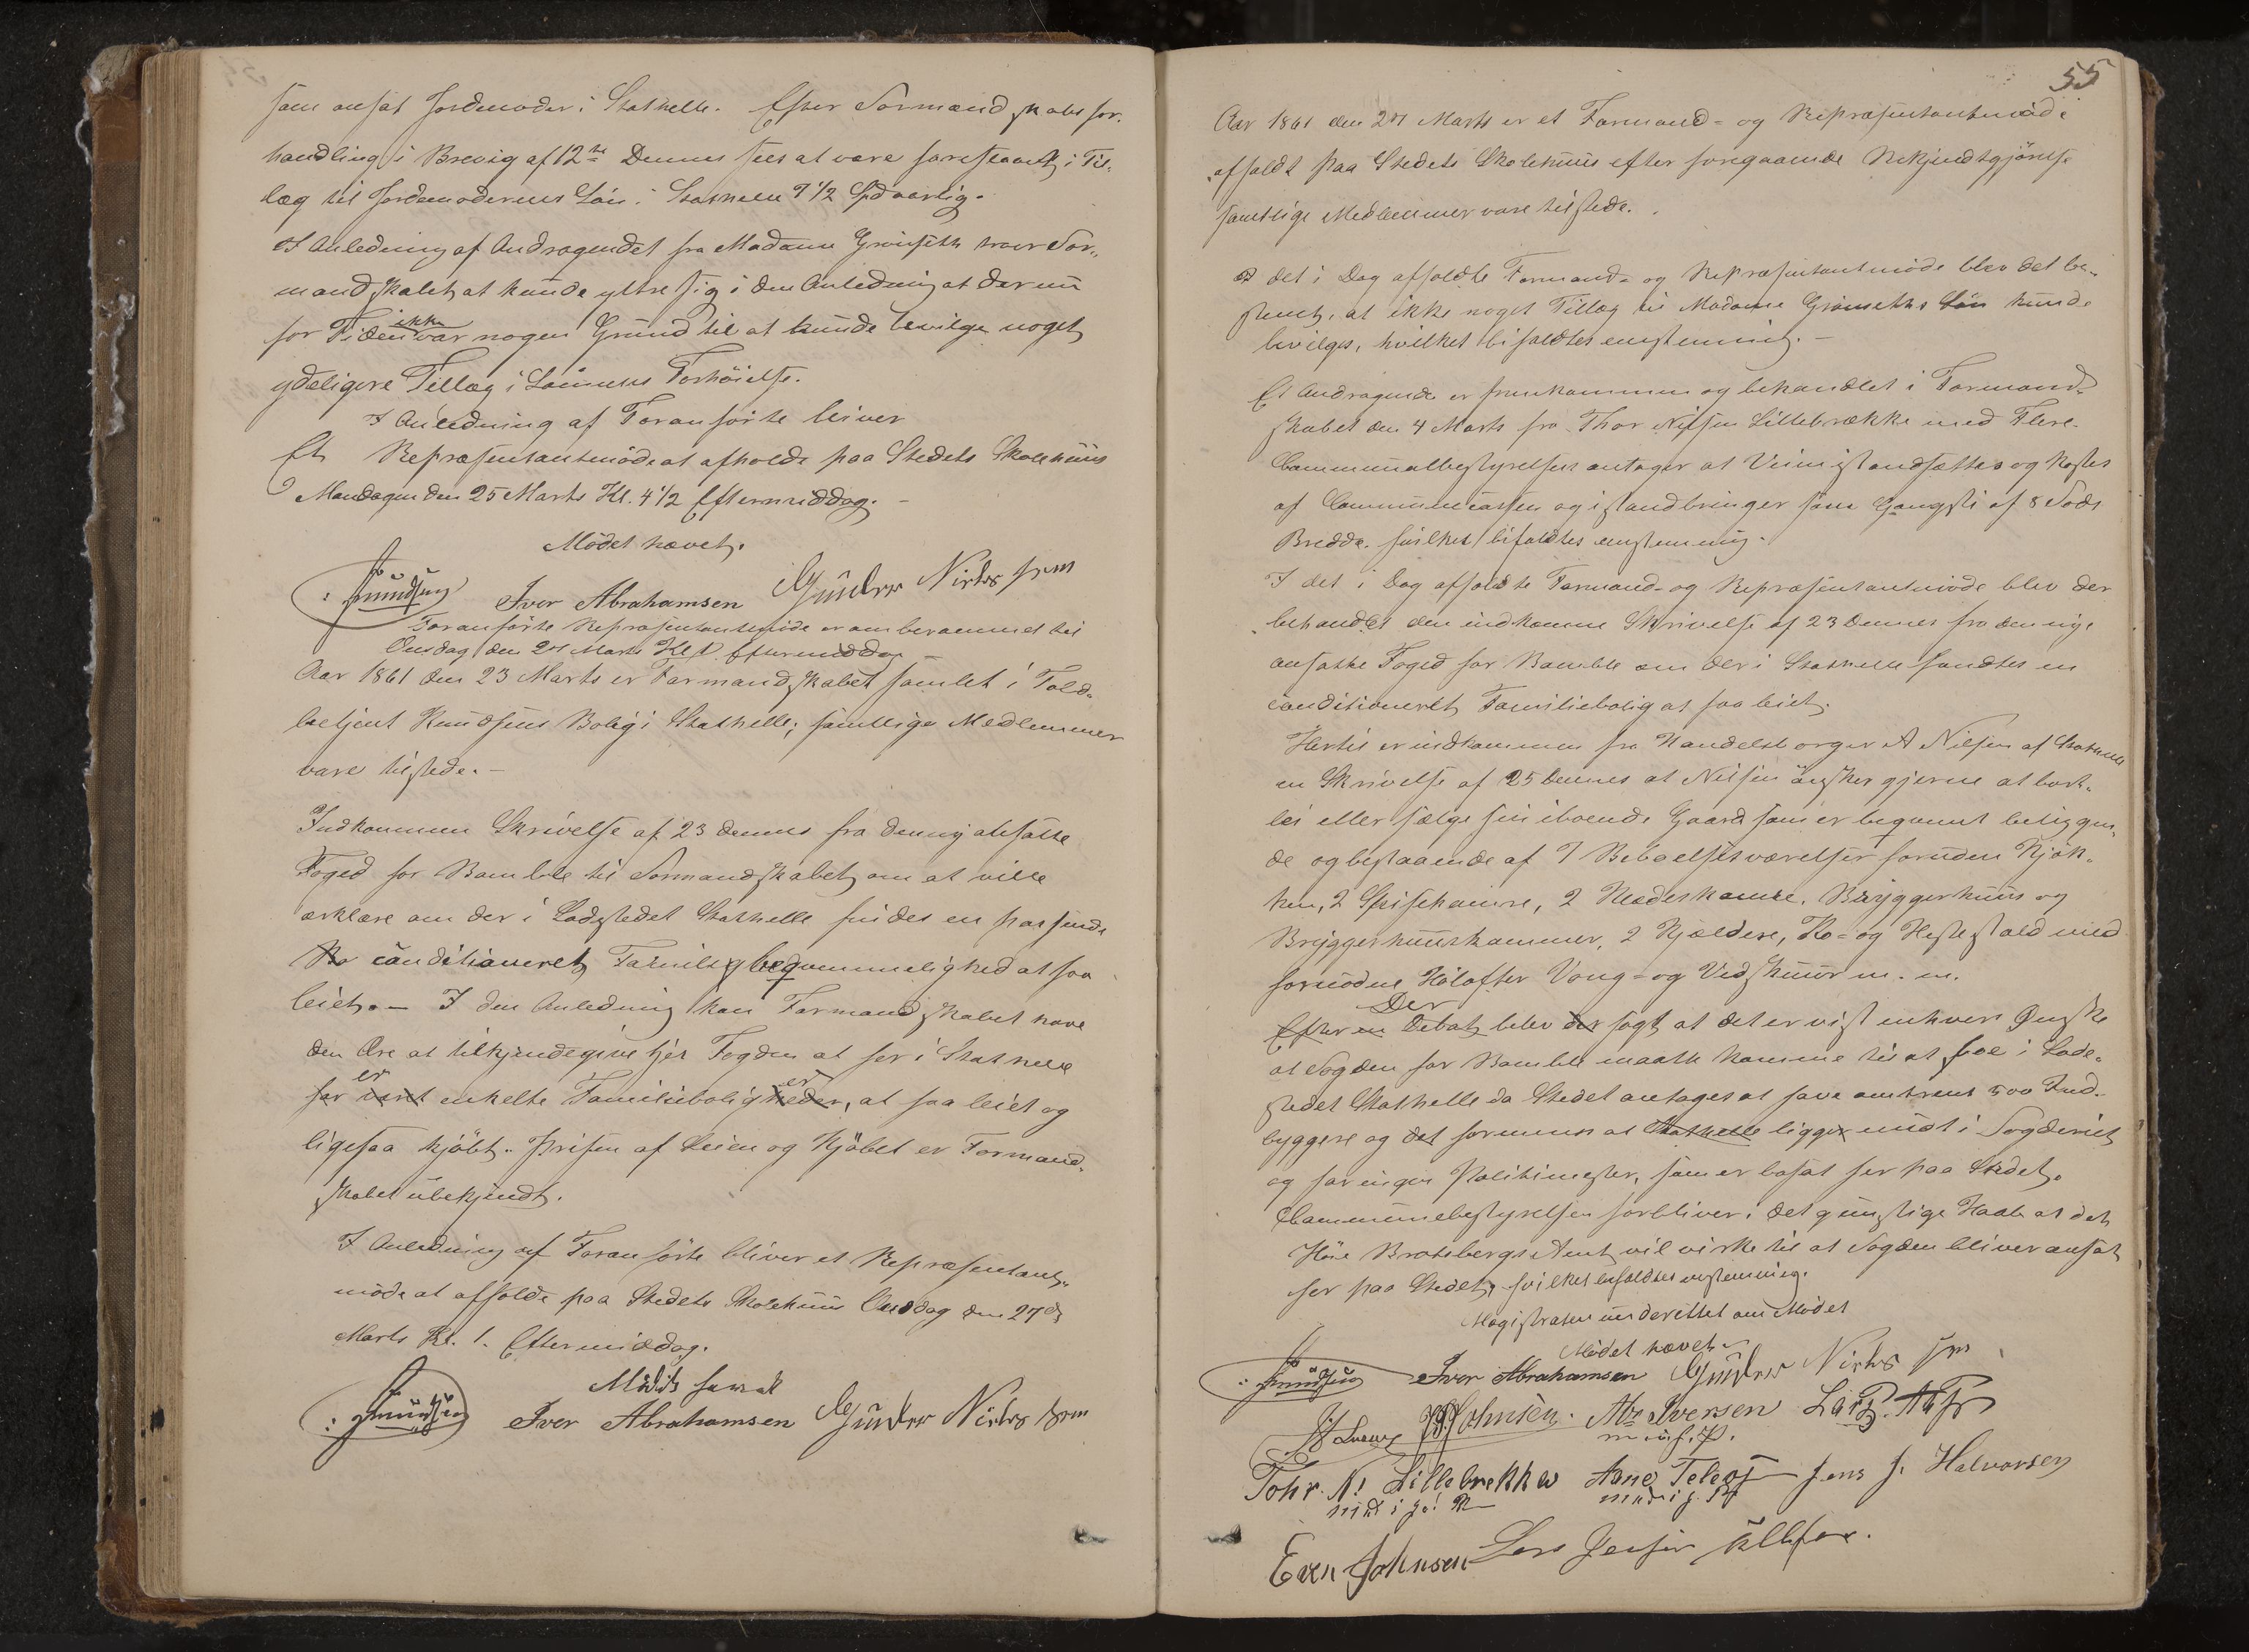 som ansat Jordemoder i Stathelle. Efter Formandskabsfor-
handling i Brevig af 12te Dennes sees at være foreslaaet i Til-
læg til Jordemoderens Løn i Stathelle 7 1/2 Spd aarlig.
I Anledning af Andragendet fra Madame Grønseth troer For-
mandskabet at kunde yttre sig i den Anledning at der nu
for Tiden ikke var nogen Grund til at kunde bevilge noget
ydeligere Tillæg i Lønnens Forhöielse.
I Anledning af Foranförte bliver
Et Repræsentantmöde at afholde paa Stedets Skolehuus
Mandagen den 25 Marts Kl. 4 1/2 Eftermiddag.
Mödet hævet.
Knudsen Iver Abrahamsen Gunder Nirks
Foranförte Repræsentantmöde er omberammet til
Onsdag den 27 Marts Kl 1 Eftermiddag
Aar 1861 den 23 Marts er Formandskabet samlet i Told-
betjent Knudsens Bolig i Stathelle; samtlige Medlemmer
vare tilstede.
Indkommen Skrivelse af 23 dennes fra den ny ansatte
Foged for Bamble til Formandskabet om at ville
erklære om der i Ladestedet Stathelle findes en passende
conditioneret Familiebeqvemmelighed at faa
leiet. – I den Anledning kan Formandskabet have
den Ære at tilkjendegive Hjr Fogden at her i Stathelle
har været er enkelte Familieboligheder er, at faa leiet og
ligesaa kjöbt. Prisen af Leien og Kjöbet er Formand-
skabet ubekjendt.
I Anledning af Foranförte bliver et Repræsentant-
möde at afholde paa Stedets Skolehuus Onsdag den 27de
Marts Kl. 1. Eftermiddag.
Mödet hævet
Knudsen Iver Abrahamsen Gunder Nirks
55
Aar 1861 den 27 Marts er et Formand- og Repræsentantmöde
afholdt paa Stedets Skolehuus efter foregaaende Bekjendtgjörelse
samtlige Medlemmer vare tilstede.
I det i Dag afholdte Formand- og Repræsentantmöde blev det be-
stemt, at ikke noget Tillæg til Madame Grönseths Lön kunde
bevilges, hvilket bifaldtes enstemmig. –
Et Andragende er fremkommen og behandlet i Formand-
skabet den 4 Marts fra Thor Nilsen Lillebrække med Flere.
Communalbestyrelsen antager at Veien istandsættes og kostes
af Communecassen og istandbringes som Gangsti af 8 Fods
Bredde. hvilket bifaldtes enstemmig.
I det i Dag afholdte Formand- og Repræsentantmöde blev der
behandlet den indkomne Skrivelse af 23 Dennes fra den nye
ansatte Foged for Bamble om der i Stathelle fandtes en
conditioneret Familiebolig at faa leiet.
Hertil er indkommen fra Handelsborger A Nilsen af Stathelle
en Skrivelse af 25 dennes at Nilsen önsker gjerne at bort-
lei eller sælge sin iboende Gaard som er beqvemt beliggen-
de og bestaaende af 7 Beboelsesværelser foruden Kjök-
ken, 2 Spisekamre, 2 Klædeskamre, Bryggerhuus og
Bryggerhuuskammer, 2 Kjældere, Ko- og Hestestald med
fornödne Hölofter Vong- og Vedskuur m. m.
Efter en Debat Der blev der sagt at det er vist enhvers Ønske
at Fogden for Bamble maatte komme til at boe i Lade-
stedet Stathelle da Stedet antages at have omtrent 500 Ind-
byggere og det formenes at Stathelle ligger midt i Fogderiet
og har ingen Politimester, som er bosat her paa Stedet.
Communebestyrelsen forbliver i det gunstige Haab at det
Höie Bratsbergs Amt vil virke til at Fogden bliver ansat
her paa Stedet, hvilket bifaldtes enstemmig.
Magistraten underrettet om Mödet
Mödet hævet
Knudsen Iver Abrahamsen Gunder Nirks
Johnsen. Abr Iversen
m. i h. P.
Tohr. N. Lillebrekke Aane Jens J. Halvorsen
Even Johnsen Lars Jensen